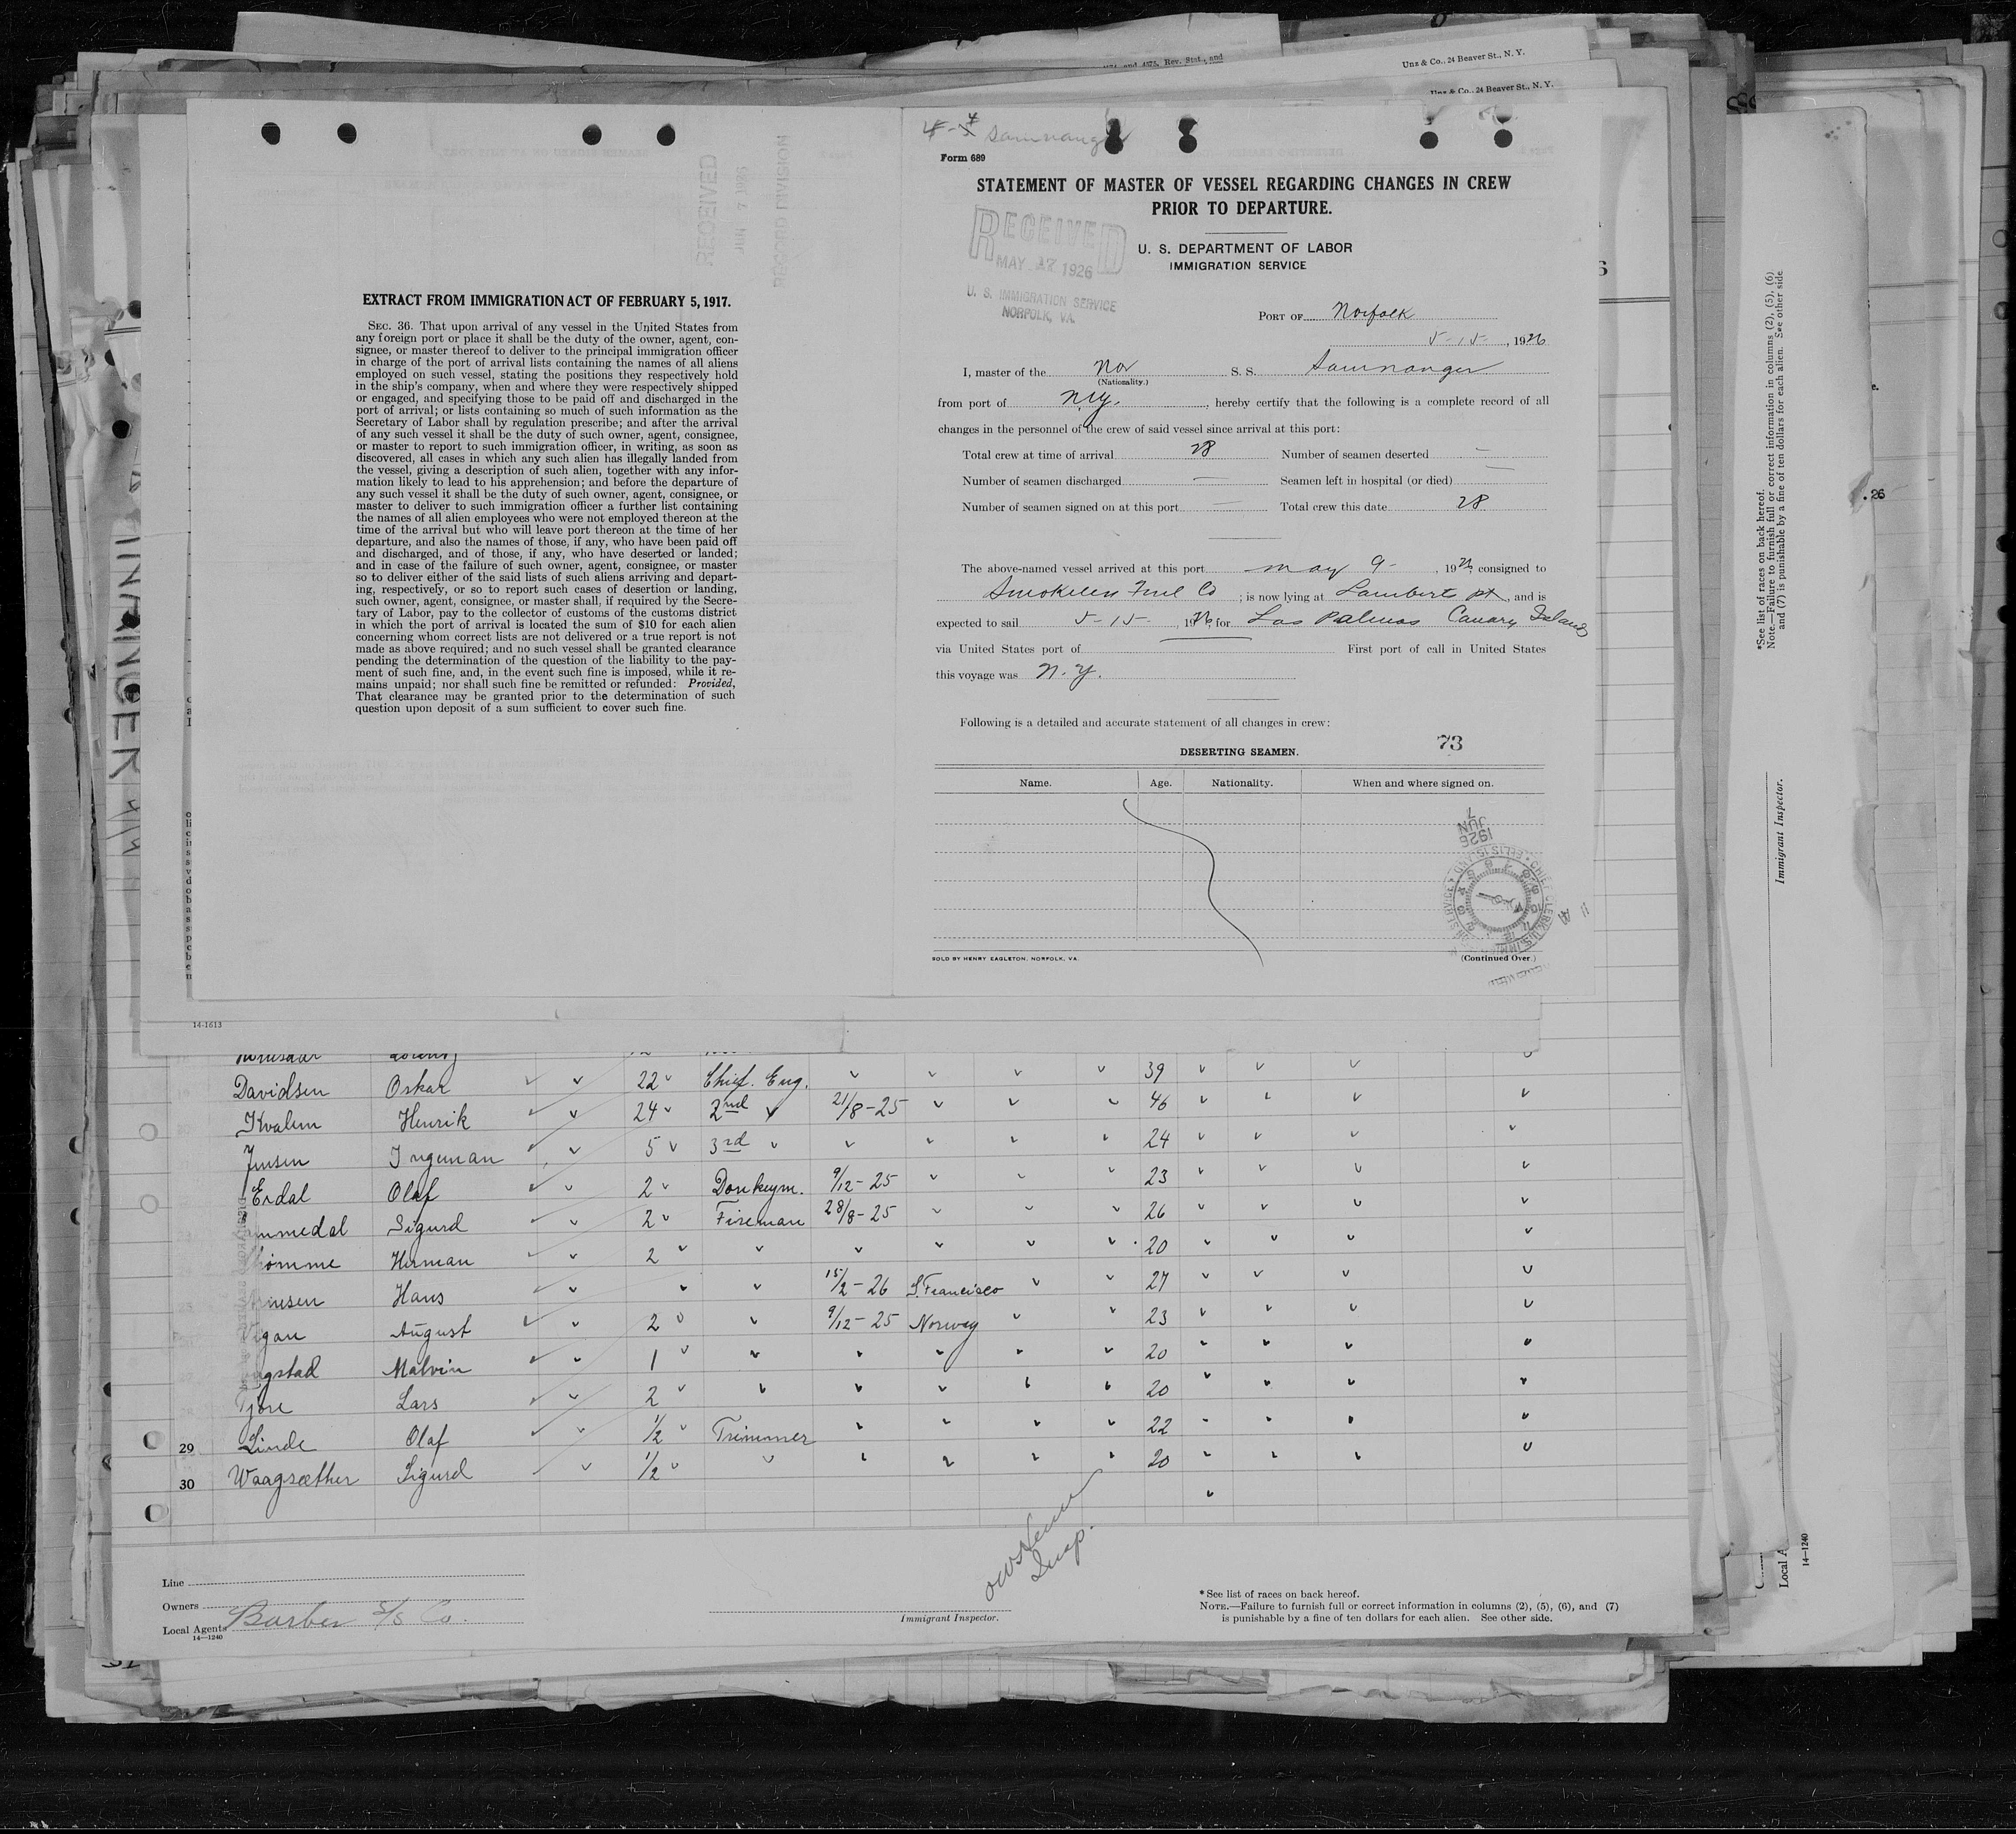 Unz & Co., 24 Beaver St., N. Y.
and 4875, Rev. Stat., and
Unz & Co., 24 Beaver St., N. Y.
RECEIVED
JUN 7 1926
RECORD DIVISION
EXTRACT FROM IMMIGRATION ACT OF FEBRUARY 5, 1917.
SEC. 36. That upon arrival of any vessel in the United States from
any foreign port or place it shall be the duty of the owner, agent, con-
signee, or master thereof to deliver to the principal immigration officer
in charge of the port of arrival lists containing the names of all aliens
employed on such vessel, stating the positions they respectively hold
in the ship's company, when and where they were respectively shipped
or engaged, and specifying those to be paid off and discharged in the
port of arrival; or lists containing so much of such information as the
Secretary of Labor shall by regulation prescribe; and after the arrival
of any such vessel it shall be the duty of such owner, agent, consignee,
or master to report to such immigration officer, in writing, as soon as
discovered, all cases in which any such alien has illegally landed from
the vessel, giving a description of such alien, together with any infor-
mation likely to lead to his apprehension; and before the departure of
any such vessel it shall be the duty of such owner, agent, consignee, or
master to deliver to such immigration officer a further list containing
the names of all alien employees who were not employed thereon at the
time of the arrival but who will leave port thereon at the time of her
departure, and also the names of those, if any, who have been paid off
and discharged, and of those, if any, who have deserted or landed;
and in case of the failure of such owner, agent, consignee, or master
so to deliver either of the said lists of such aliens arriving and depart-
ing, respectively, or so to report such cases of desertion or landing,
such owner, agent, consignee, or master shall, if required by the Secre-
tary of Labor, pay to the collector of customs of the customs district
in which the port of arrival is located the sum of $10 for each alien
concerning whom correct lists are not delivered or a true report is not
made as above required; and no such vessel shall be granted clearance
pending the determination of the question of the liability to the pay-
ment of such fine, and, in the event such fine is imposed, while it re-
mains unpaid; nor shall such fine be remitted or refunded: Provided,
That clearance may be granted prior to the determination of such
question upon deposit of a sum sufficient to cover such fine.
Samnanger
Form 689
STATEMENT OF MASTER OF VESSEL REGARDING CHANGES IN CREW
PRIOR TO DEPARTURE.
RECEIVED
MAY 17 1926
U. S. IMMIGRATION SERVICE
NORFOLK, VA.
U. S. DEPARTMENT OF LABOR
IMMIGRATION SERVICE
PORT OF Norfolk
5-15-, 1926
I, master of the Nor S. S. Samnanger
(Nationality.)
from port of N.Y., hereby certify that the following is a complete record of all
changes in the personnel of the crew of said vessel since arrival at this port:
Total crew at time of arrival 28 Number of seamen deserted —
Number of seamen discharged — Seamen left in hospital (or died) —
Number of seamen signed on at this port — Total crew this date 28
The above-named vessel arrived at this port May 9-, 1926, consigned to
Smokeless Fuel Co; is now lying at Lambert pt, and is
expected to sail 5-15-, 1926, for Las Palmas Canary Islands
via United States port of First port of call in United States
this voyage was N.Y.
Following is a detailed and accurate statement of all changes in crew:
DESERTING SEAMEN. 73
Name. Age. Nationality. When and where signed on.
JUN 7 1926
SOLD BY HENRY EAGLETON, NORFOLK, VA. (Continued Over.)
14-1613
Davidsen Oskar 22 Chief. Eng. 39
Kvalem Henrik 24 2nd 21/8-25 46
Jensen Ingeman 5 3rd 24
Erdal Olaf 2 Donkeym. 9/12-25 23
Sigurd 2 Fireman 28/8-25 26
Herman 2 20
Hans 15/2-26 S.Francisco 27
August 2 9/12-25 Norway 23
Malvin 1 20
Lars 2 20
29 Linde Olaf 1/2 Trimmer 22
30 Waagsæther Sigurd 1/2 20
Insp.
Line
Owners
Local Agents Barber S/S Co.
14—1240
Immigrant Inspector.
* See list of races on back hereof.
NOTE.—Failure to furnish full or correct information in columns (2), (5), (6), and (7)
is punishable by a fine of ten dollars for each alien. See other side.
*See list of races on back hereof.
Note.—Failure to furnish full or correct information in columns (2), (5), (6)
and (7) is punishable by a fine of ten dollars for each alien. See other side
Immigrant Inspector.
Local A
14—1240